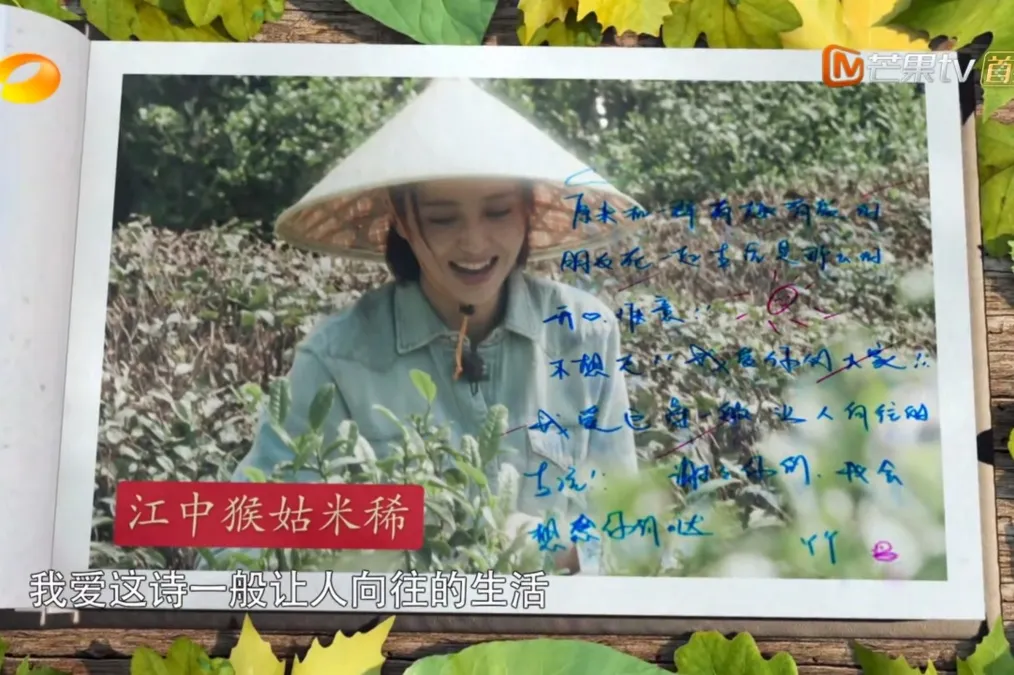 芒果tv 首
原来和一群有趣有爱的
朋友在一起生活是那么的
开心难度!!
不想走!! 我爱你们大家!!
我爱这诗一般让人向往的
生活!! 谢谢你们.我会
想念你们哒
丫丫
江中猴姑米稀
我爱这诗一般让人向往的生活